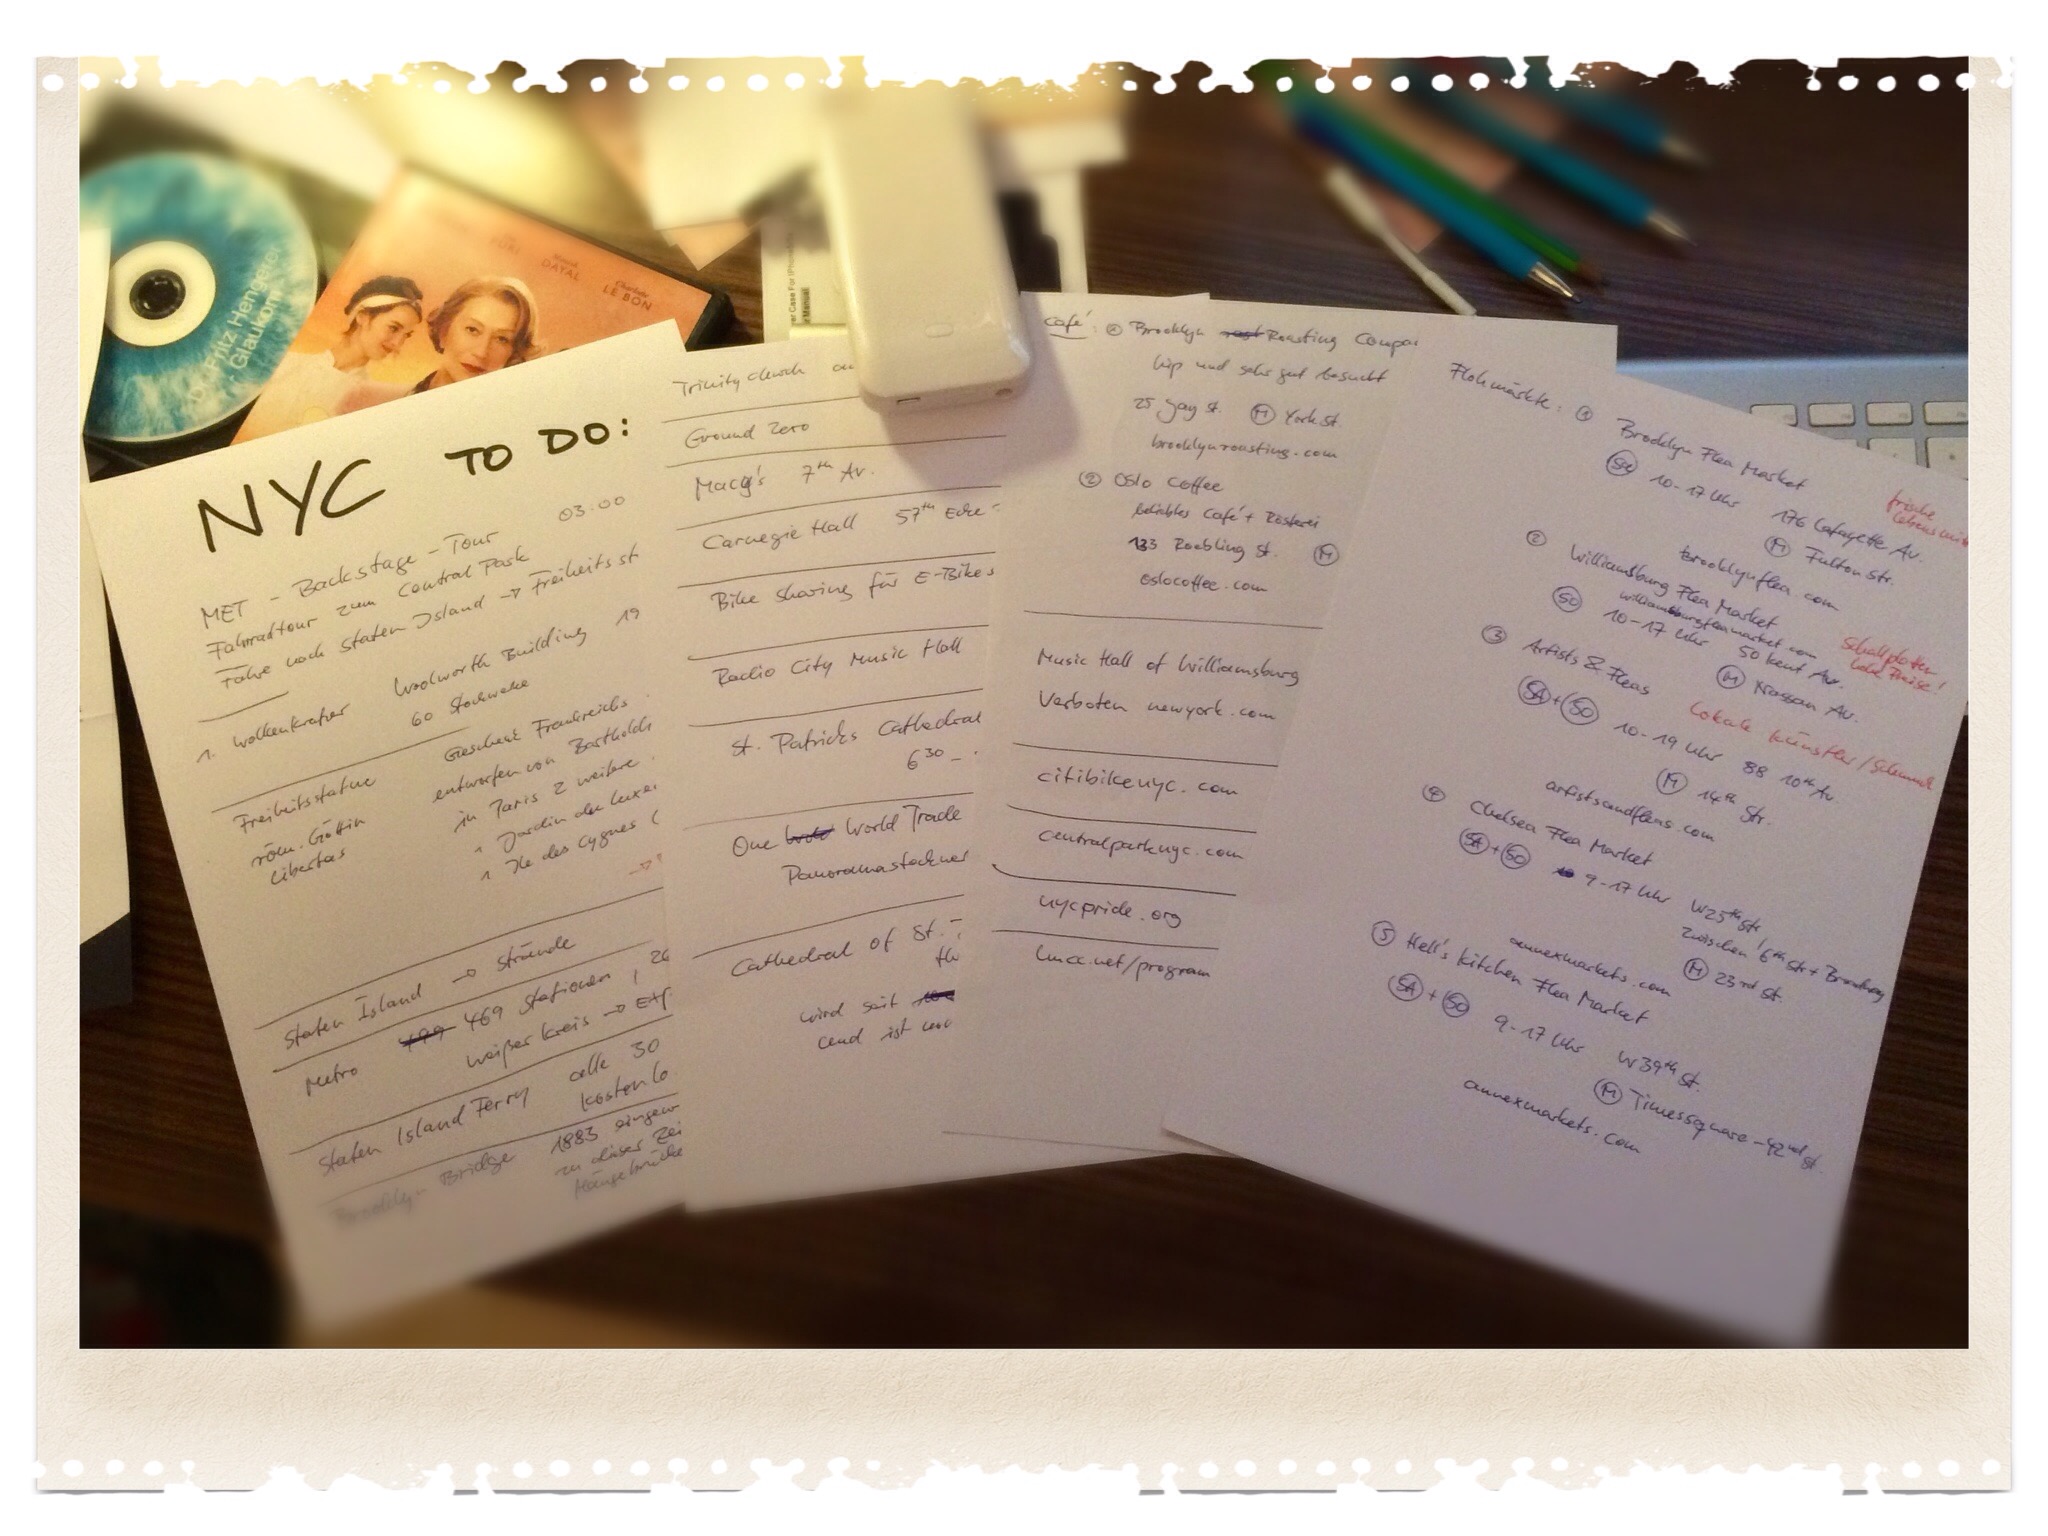 Dr. Fritz Hengerer
Glaukom
PURI
DAYAL
Charlotte
LE BON
er Case For iPhone
r Manual
NYC TO DO:
03:00
MET - Backstage - Tour
Fahrradtour zum Central Park
Fähre nach Staten Island → Freiheitsst
1. Wolkenkratzer Woolworth Building 19
60 Stockwerke
Freiheitsstatue Geschenk Frankreichs
röm. Göttin entworfen von Bartholdi
Libertas in Paris 2 weitere
Jardin du Luxe
Ile des Cygnes (
Staten Island → Strände
Metro 469 Stationen, 26
weißer Kreis → Exp
Staten Island Ferry alle 30
kostenlo
Brooklyn Bridge 1883 eingew
zu dieser Zei
Hängebrücke
Trinity church
Ground Zero
Macy's 7th Av.
Carnegie Hall 57th Ecke
Bike sharing für E-Bikes
Radio City Music Hall
St. Patricks Cathedral
6 30 -
One World Trade
Panoramastockwer
Cathedral of St.
th
wird seit
und ist
Café: ① Brooklyn Roasting Compa
hip und sehr gut besucht
25 Jay St. Ⓜ York St.
brooklynroasting.com
② Oslo Coffee
beliebtes Café + Rösterei
133 Roebling St. Ⓜ
oslocoffee.com
Music Hall of Williamsburg
Verboten newyork.com
citibikenyc.com
centralparknyc.com
nycpride.org
lmcc.net/program
Flohmärkte: ① Brooklyn Flea Market
SA 10-17 Uhr 176 Lafayette Av.
frische
Lebensmitt
Ⓜ Fulton Str.
brooklynflea.com
② Williamsburg Flea Market
williamsburgfleamarket.com
SO 10-17 Uhr 50 Kent Av.
Schallplatten
Ⓜ Nassau Av.
③ Artists & Fleas
Lokale Künstler/
SA + SO 10-19 Uhr 88 10th Av.
Ⓜ 14th Str.
artistsandfleas.com
④ Chelsea Flea Market
SA + SO 9-17 Uhr W25th Str.
zwischen 6th Str + Broadway
Ⓜ 23rd St.
annexmarkets.com
⑤ Hell's Kitchen Flea Market
SA + SO 9-17 Uhr W39th St.
Ⓜ Timessquare - 42nd St.
annexmarkets.com